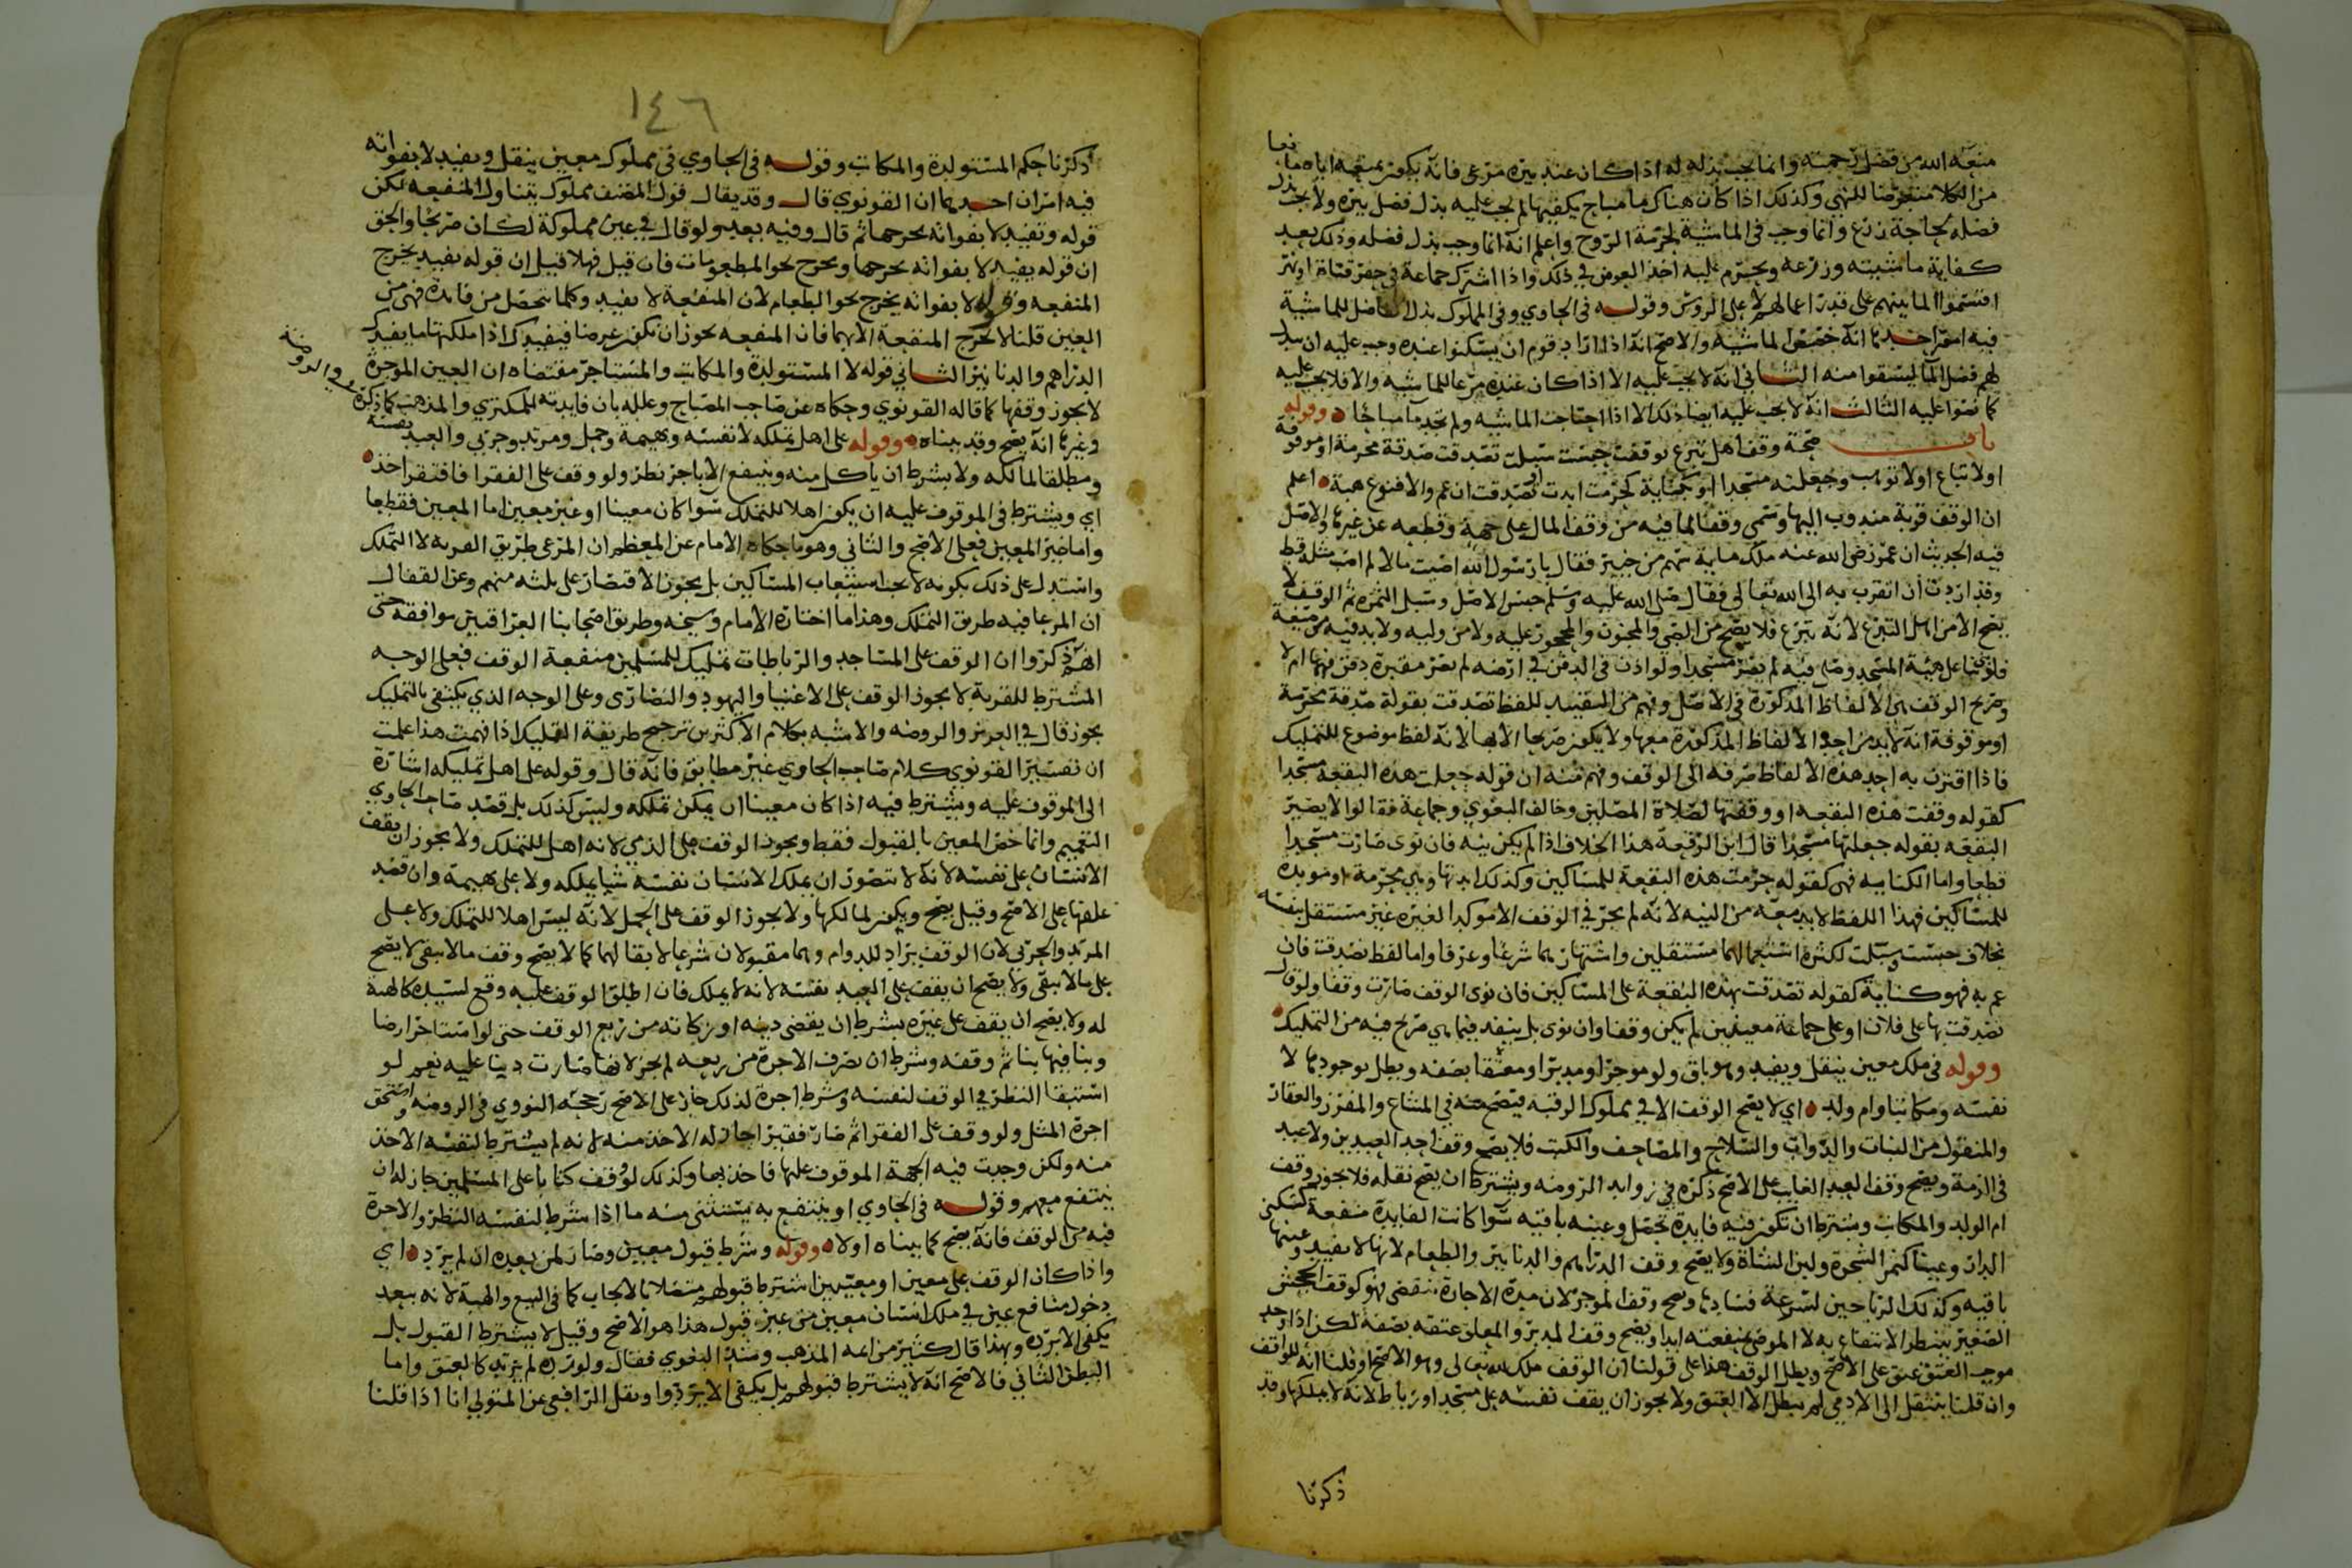 منعه الله من فضل رحمته وانما يجب بذله له اذا كان عند بيره مرعى فانه يكون بمنعه اياه مانعا
من الكلا متعرضا للنهي وكذلك اذا كان هناك ما مباح يكفيها لم يجب عليه بذل فضل بيره ولا يجب بذل
فضله لحاجة زرع وانما وجب في الماشية لحرمة الروح واعلم انه انما وجب بذل فضله وذلك بعد
كفاية ماشيته وزرعه ويحرم عليه اخذ العوض في ذلك واذا اشترك جماعة في حفر قناة او بير
اقتسموا الما بينهم على قدر اعمالهم لا على الروس وقوله في الحاوي وفي المملوك بذل الفاضل للماشية
فيه امور احدها انه خصص الماشية والاصح انه اذا اراد قوم ان يسكنوا عنده وجب عليه ان يبذل
لهم فضل الما ليسقوا منه الثاني انه لا يجب عليه الا اذا كان عنده مرعا للماشيه والا فلا يجب عليه
كما نصوا عليه الثالث انه لا يجب عليه ايضا ذلك الا اذا احتاجت الماشيه ولم تجد ما مباحا وقوله
باب صحة وقف اهل تبرع بوقفت حبست سبلت تصدقت صدقة محرمة او موقوفة
اولا تباع اولا توهب وجعلته مسجدا او بكناية كحرمت ابدت او تصدقت ان عم والا فنوع هبة اعلم
ان الوقف قربة مندوب اليها وسمي وقفا لما فيه من وقف المال على جهة وقطعه عن غيرها والاصل
فيه الحديث ان عمر رضي الله عنه ملك ماية سهم من خيبر فقال يا رسول الله اصبت مالا لم اصب مثله قط
وقد اردت ان اتقرب به الى الله تعالى فقال صلى الله عليه وسلم حبس الاصل وسبل الثمره ثم الوقف لا
يصح الا من اهل التبرع لانه تبرع فلا يصح من الصبي والمجنون والمحجور عليه ولا من وليه ولا بد فيه من صيغة
فلو بنا على هيئة المسجد وصلى فيه لم يصر مسجدا ولو اذن في الدفن في ارضه لم تصر مقبرة دفن فيها ام لا
وصريح الوقف هي الالفاظ المذكورة في الاصل وفهم من التقييد للفظ تصدقت بقوله صدقة محرمة
او موقوفة انه لا بد من احد الالفاظ المذكورة معها ولا يكون صريحا الا بها لانه لفظ موضوع للتمليك
فاذا اقترن به احد هذه الالفاظ صرفه الى الوقف وفهم منه ان قوله جعلت هذه البقعة مسجدا
كقوله وقفت هذه البقعه او وقفتها لصلاة المصلين وخالف البغوي وجماعة فقالوا لا يصير
البقعه بقوله جعلتها مسجدا قال ابن الرفعة هذا الخلاف اذا لم يكن نيه فان نوى صارت مسجدا
قطعا واما الكنايه فهي كقوله حرمت هذه البقعة للمساكين وكذلك ابدتها وهي محرمة او موبده
للمساكين فهذا اللفظ لا بد معه من النيه لانه لم يجر في الوقف الا موكدا لغيره غير مستقل بنفسه
بخلاف حبست وسبلت لكثرة استعمالهما مستقلين واشتهارهما شرعا وعرفا واما لفظ تصدقت فان
عم به فهو كناية كقوله تصدقت بهذه البقعة على المساكين فان نوى الوقف صارت وقفا ولو قال
تصدقت بها على فلان او على جماعة معينين لم يكن وقفا وان نوى بل ينفذ فيما هي صريح فيه من التمليك
وقوله في ملك معين ينقل ويفيد وهو باق ولو موجرا ومدبرا ومعتقا بصفه وبطل بوجودها لا
نفسه ومكاتبا وام ولد اي لا يصح الوقف الا في مملوك الرقبه فيصح منه في المشاع والمفرز والعقار
والمنقول من النبات والدواب والسلاح والمصاحف والكتب فلا يصح وقف احد العبدين ولا عبد
في الذمة ويصح وقف العبد الغايب على الاصح ذكره في زوايد الروضه ويشترط ان يصح نقله فلا يجوز وقف
ام الولد والمكاتب ويشترط ان تكون فيه فايدة تحصل وعينه باقيه سوا كانت الفايدة منفعة كسكنى
الدار وعينا كثمر الشجرة ولبن الشاة ولا يصح وقف الدراهم والدنانير والطعام لانها لا يفيد وعينها
باقيه وكذلك الرياحين لسرعة فسادها وصح وقف الموجر لان مدة الاجارة تنقضي فهو كوقف الجحش
الصغير ينتظر الانتفاع به لا الموصى بمنفعته ابدا ويصح وقف المدبر والمعلق عتقه بصفه لكن اذا وجد
موجب العتق عتق على الاصح وبطل الوقف هذا على قولنا ان الوقف ملك لله تعالى وهو الاصح او قلنا انه للواقف
وان قلنا ينتقل الى الادمي لم يبطل الا العتق ولا يجوز ان يقف نفسه على مسجد او رباط لانه لا يملكها وقد
ذكرنا
١٤٦
ذكرنا حكم المستولدة والمكاتب وقوله في الحاوي في مملوك معين ينقل ويفيد لا بفواته
فيه امران احدهما ان القونوي قال وقد يقال قول المصنف مملوك يتناول المنفعه لكن
قوله وتفيد لا بفواته يخرجها ثم قال وفيه بعد ولو قال في عين مملوكة لكان صريحا والحق
ان قوله يفيد لا بفواته يخرجها ويخرج نحو المطعومات فان قيل فهلا قيل ان قوله يفيد يخرج
المنفعه وقوله لا بفواته يخرج نحو الطعام لان المنفعة لا تفيد وكلما تحصل من فايدة فهي من
العين قلنا لا تخرج المنفعة الا بهما فان المنفعه يجوز ان تكون عوضا فيفيدك اذا ملكتها ما يفيدك
الدراهم والدنانير الثاني قوله لا المستولدة والمكاتب والمستاجر مقتضاه ان العين الموجرة
لا يجوز وقفها كما قاله القونوي وحكاه عن صاحب المصباح وعلله بان فايدته للمكتري والمذهب كما ذكره في الروضة
وغيرها انه يصح وقد بيناه وقوله على اهل تملكه لا نفسه وبهيمة وحمل ومرتد وحربي والعبد نفسه
ومطلقا لمالكه ولا بشرط ان ياكل منه وينتفع لا باجر نظر ولو وقف على الفقرا فافتقر اخذ
اي ويشترط في الموقوف عليه ان يكون اهلا للتملك سوا كان معينا او غير معين اما المعين فقطعا
واما غير المعين فعلى الاصح والثاني وهو ما حكاه الامام عن المعظم ان المرعى طريق القربه لا التملك
واستدل على ذلك بكونه لا يجب استيعاب المساكين بل يجوز الاقتصار على ثلثه منهم وعن القفال
ان المرعا فيه طريق التملك وهذا ما اختاره الامام وشيخه وطريق اصحابنا العراقيين موافقه حتى
انهم ذكروا ان الوقف على المساجد والرباطات تمليك للمسلمين منفعة الوقف فعلى الوجه
المشترط للقربة لا يجوز الوقف على الاغنيا واليهود والنصارى وعلى الوجه الذي يكتفى بالتمليك
يجوز قال في العزيز والروضه والاشبه بكلام الاكثرين ترجيح طريقة التمليك اذا فهمت هذا علمت
ان تفسير القونوي كلام صاحب الحاوي غير مطابق فانه قال وقوله على اهل تمليكه اشارة
الى الموقوف عليه ويشترط فيه اذا كان معينا ان يمكن تملكه وليس كذلك بل قصد صاحب الحاوي
التعميم وانما خص المعين بالقبول فقط ويجوز الوقف على الذمي لانه اهل للتملك ولا يجوز ان يقف
الانسان على نفسه لانه لا يتصور ان يملك الانسان نفسه شيا يملكه ولا على بهيمة وان قصد
علفها على الاصح وقيل يصح ويكون لمالكها ولا يجوز الوقف على الحمل لانه ليس اهلا للتملك ولا على
المرتد والحربي لان الوقف يراد للدوام وهما مقتولان شرعا لا بقا لهما كما لا يصح وقف مالا يبقى لا يصح
على مالا يبقى ولا يصح ان يقف على العبد نفسه لانه لا يملك فان اطلق الوقف عليه وقع لسيده كالهبة
له ولا يصح ان يقف على غيره بشرط ان يقضي دينه او زكاته من ريع الوقف حتى لو استاجر ارضا
وبنا فيها بنا ثم وقفه وشرط ان تصرف الاجرة من ريعه لم يجز لانها صارت دينا عليه نعم لو
استبقا النظر في الوقف لنفسه وشرط اجرة لذلك جاز على الاصح رجحه النووي في الروضه واستحق
اجرة المثل ولو وقف على الفقرا ثم صار فقيرا جاز له الاخذ منه لانه لم يشترط لنفسه الاخذ
منه ولكن وجدت فيه الجهة الموقوف عليها فاخذ بها وكذلك لو وقف كتابا على المسلمين جاز له ان
ينتفع معهم وقوله في الحاوي او ينتفع به يستثنى منه ما اذا شرط لنفسه النظر والاجرة
فيه من الوقف فانه يصح كما بيناه اولا وقوله وشرط قبول معين وصار لمن بعده ان لم يرد اي
واذا كان الوقف على معين او معينين اشترط قبولهم متصلا بالايجاب كما في البيع والهبة لانه يبعد
دخول منافع عين في ملك انسان معين من غير قبول هذا هو الاصح وقيل لا يشترط القبول بل
يكفي الا يرده وبهذا قال كثير من ايمه المذهب ومنهم البغوي فقال ولو رده لم يرتد كالعتق واما
البطن الثاني فالاصح انه لا يشترط قبولهم بل يكفي الا يردوا ونقل الرافعي عن المتولي انا اذا قلنا